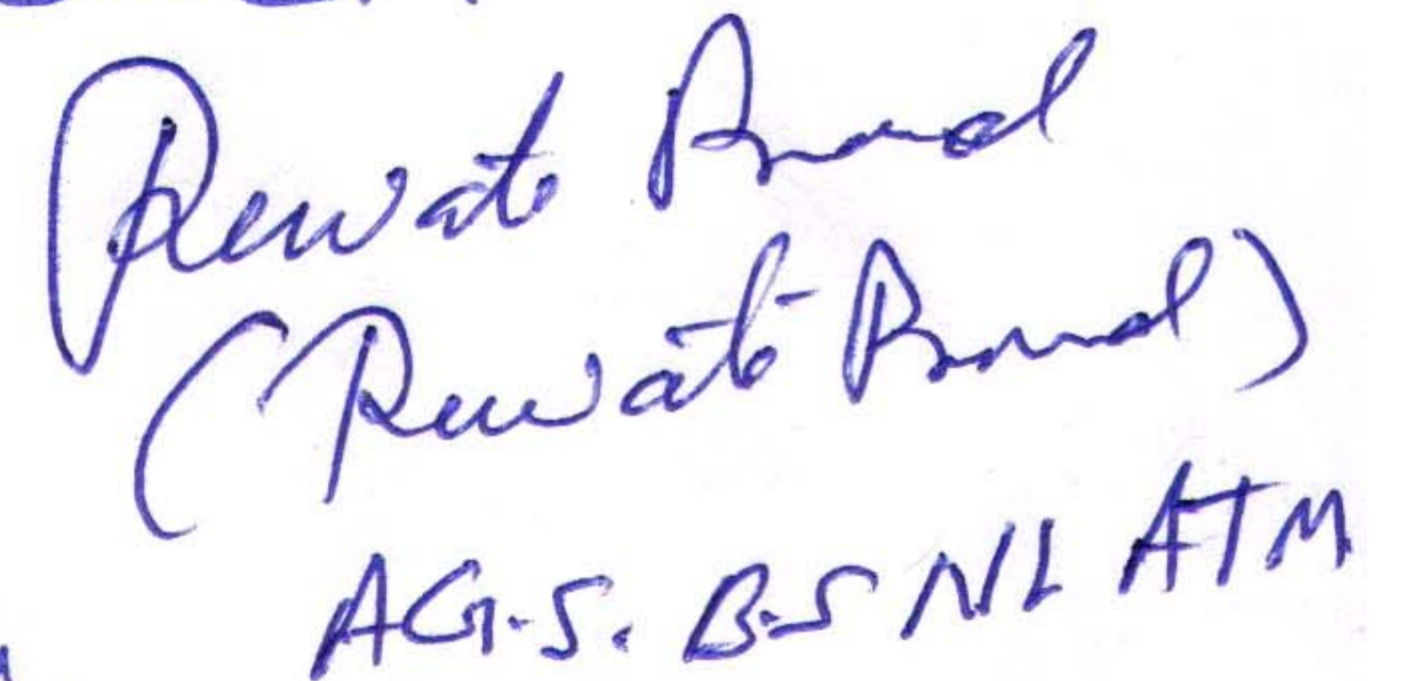 Rewati Prasad
(Rewati Prasad)
AG.S. B.S NL ATM